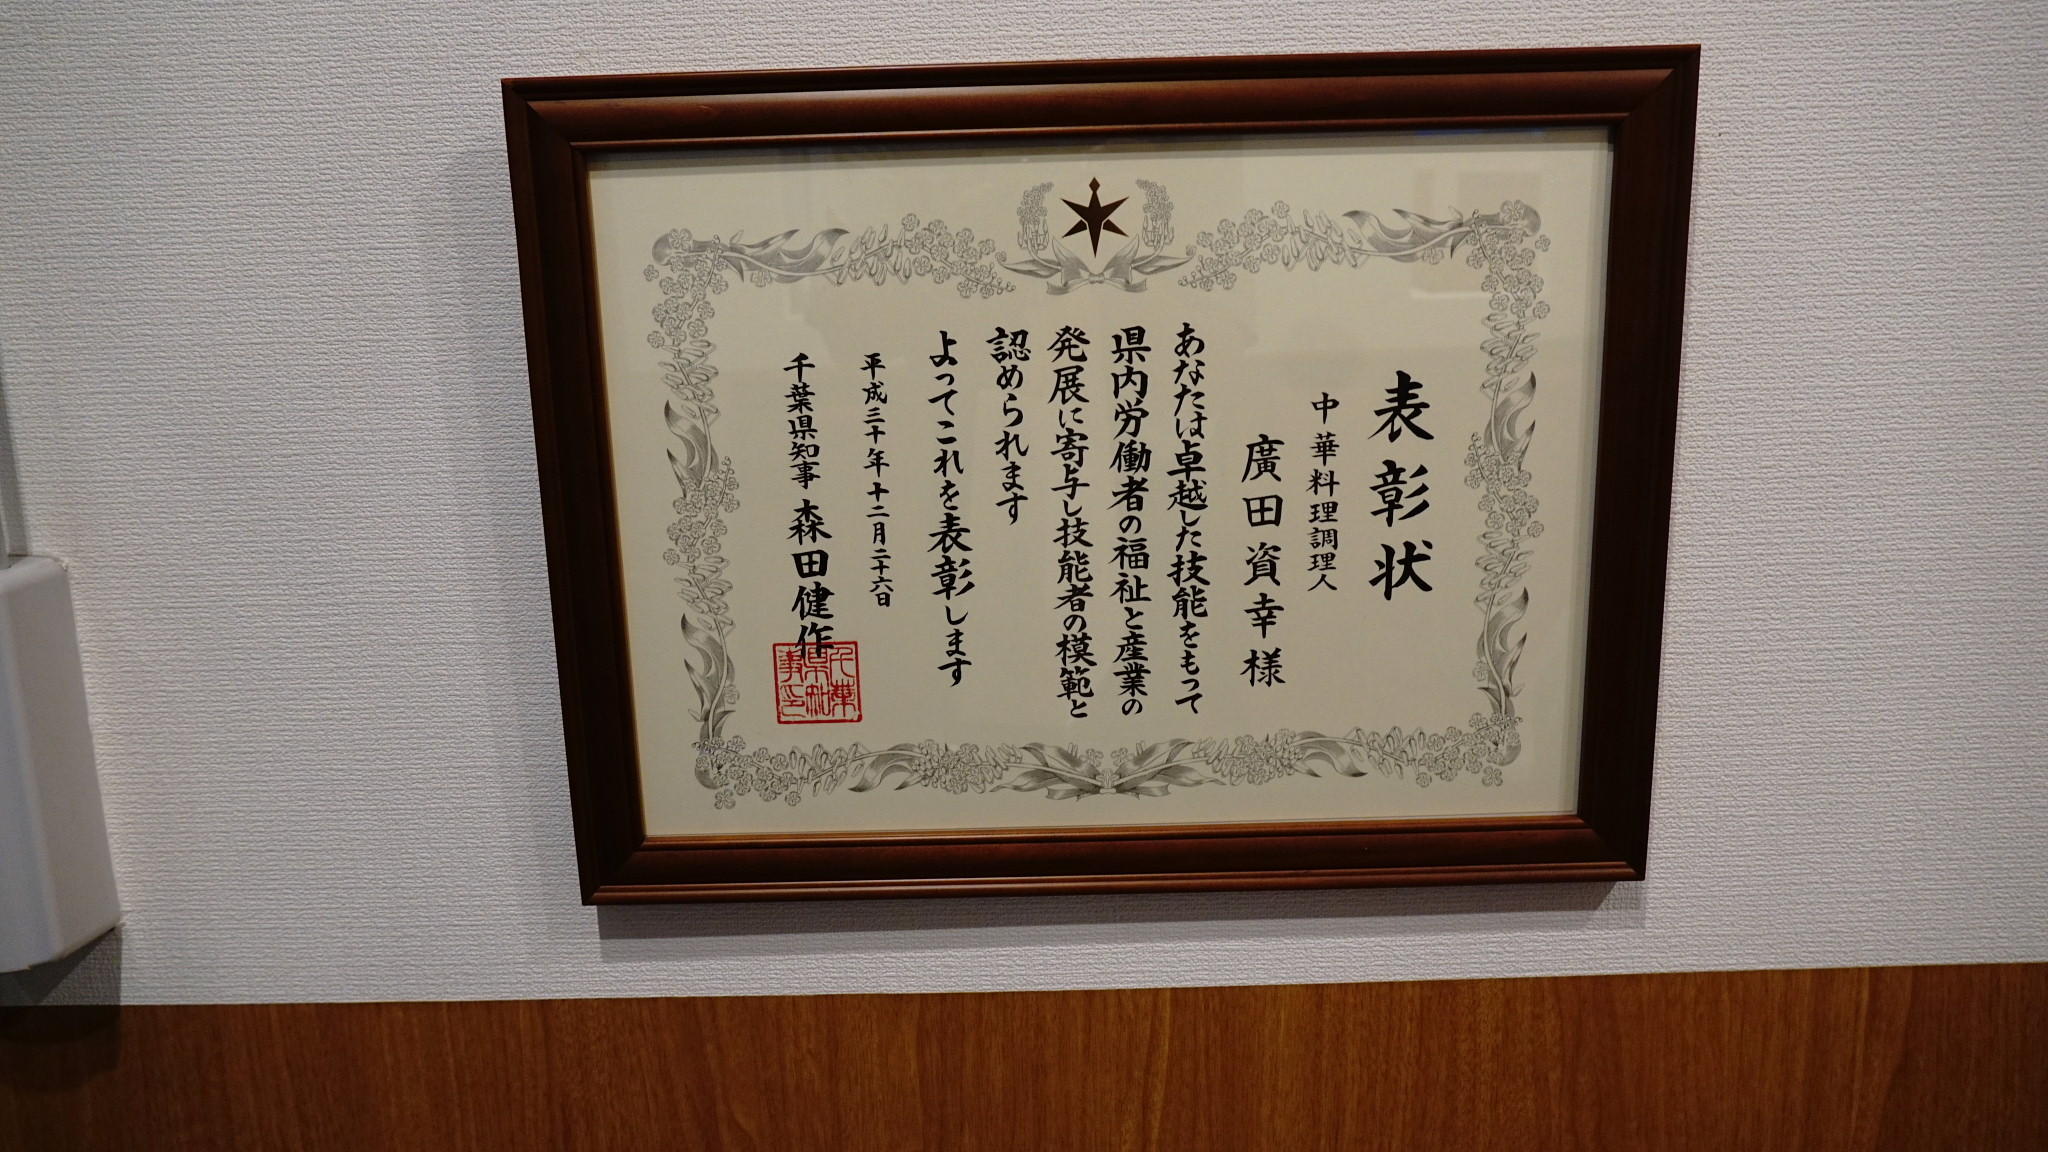 表彰状
中華料理調理人
廣田資幸様
あなたは卓越した技能をもって
県内労働者の福祉と産業の
発展に寄与し技能者の模範と
認められます
よってこれを表彰します
平成三十年十二月二十六日
千葉県知事 森田健作
千葉県知事之印